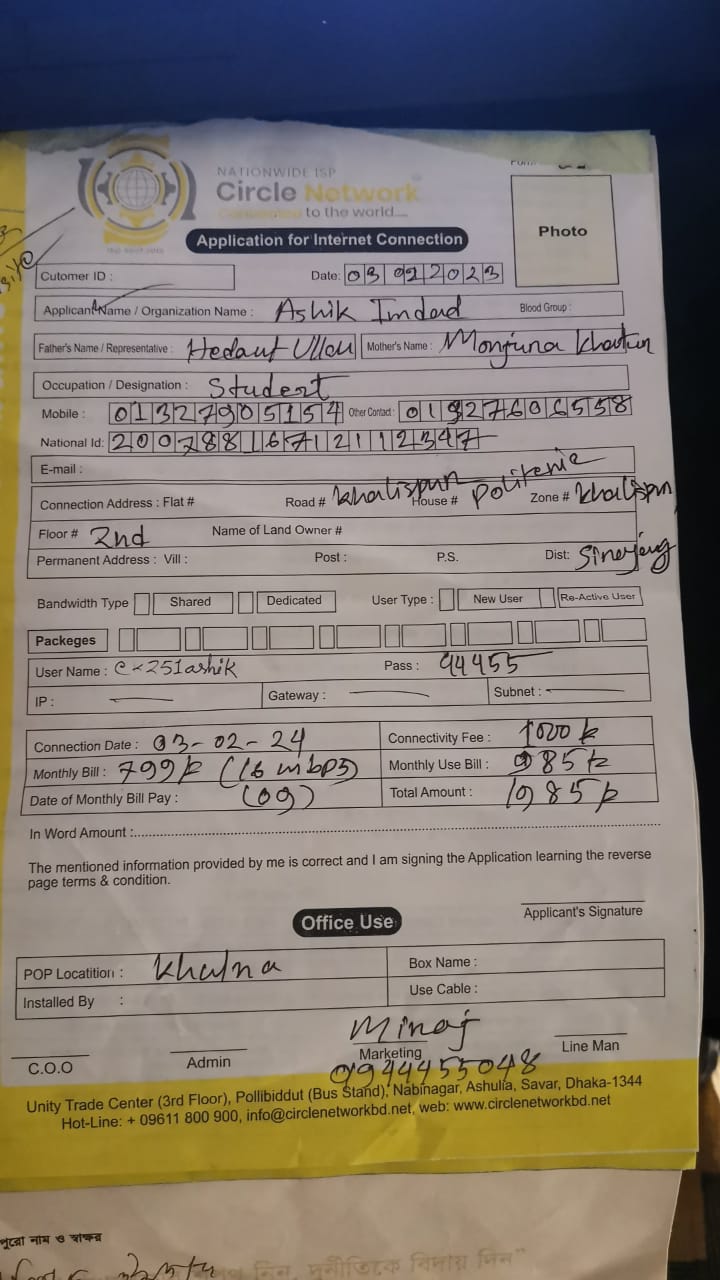 NATIONWIDE ISP
Circle Network
Connected to the world....
Application for Internet Connection
Photo
Cutomer ID :
Date: 03 02 2023
Applicant Name / Organization Name : Ashik Imdad Blood Group :
Father's Name / Representative : Hedaut Ullau Mother's Name : Monjuna Khatun
Occupation / Designation : Student
Mobile : 01327905154 Other Contact : 01927606558
National Id: 20078816712112347
E-mail :
Connection Address : Flat # Road # Khalispur House # Politenic Zone # Khalispur
Floor # 2nd Name of Land Owner #
Permanent Address : Vill : Post : P.S. Dist: Sirajgong
Bandwidth Type Shared Dedicated User Type : New User Re-Active User
Packeges
User Name : C-251ashik Pass : 44455
IP : Gateway : Subnet :
Connection Date : 03-02-24 Connectivity Fee : 1000 k
Monthly Bill : 799k (16 mbps) Monthly Use Bill : 985k
Date of Monthly Bill Pay : (09) Total Amount : 1985k
In Word Amount :
The mentioned information provided by me is correct and I am signing the Application learning the reverse
page terms & condition.
Applicant's Signature
Office Use
POP Locatition : Khulna Box Name :
Installed By : Use Cable :
Minaj
C.O.O Admin Marketing Line Man
01944455048
Unity Trade Center (3rd Floor), Pollibiddut (Bus Stand), Nabinagar, Ashulia, Savar, Dhaka-1344
Hot-Line: + 09611 800 900, info@circlenetworkbd.net, web: www.circlenetworkbd.net
পুরো নাম ও স্বাক্ষর
নিন, দুর্নীতিকে বিদায় দিন"